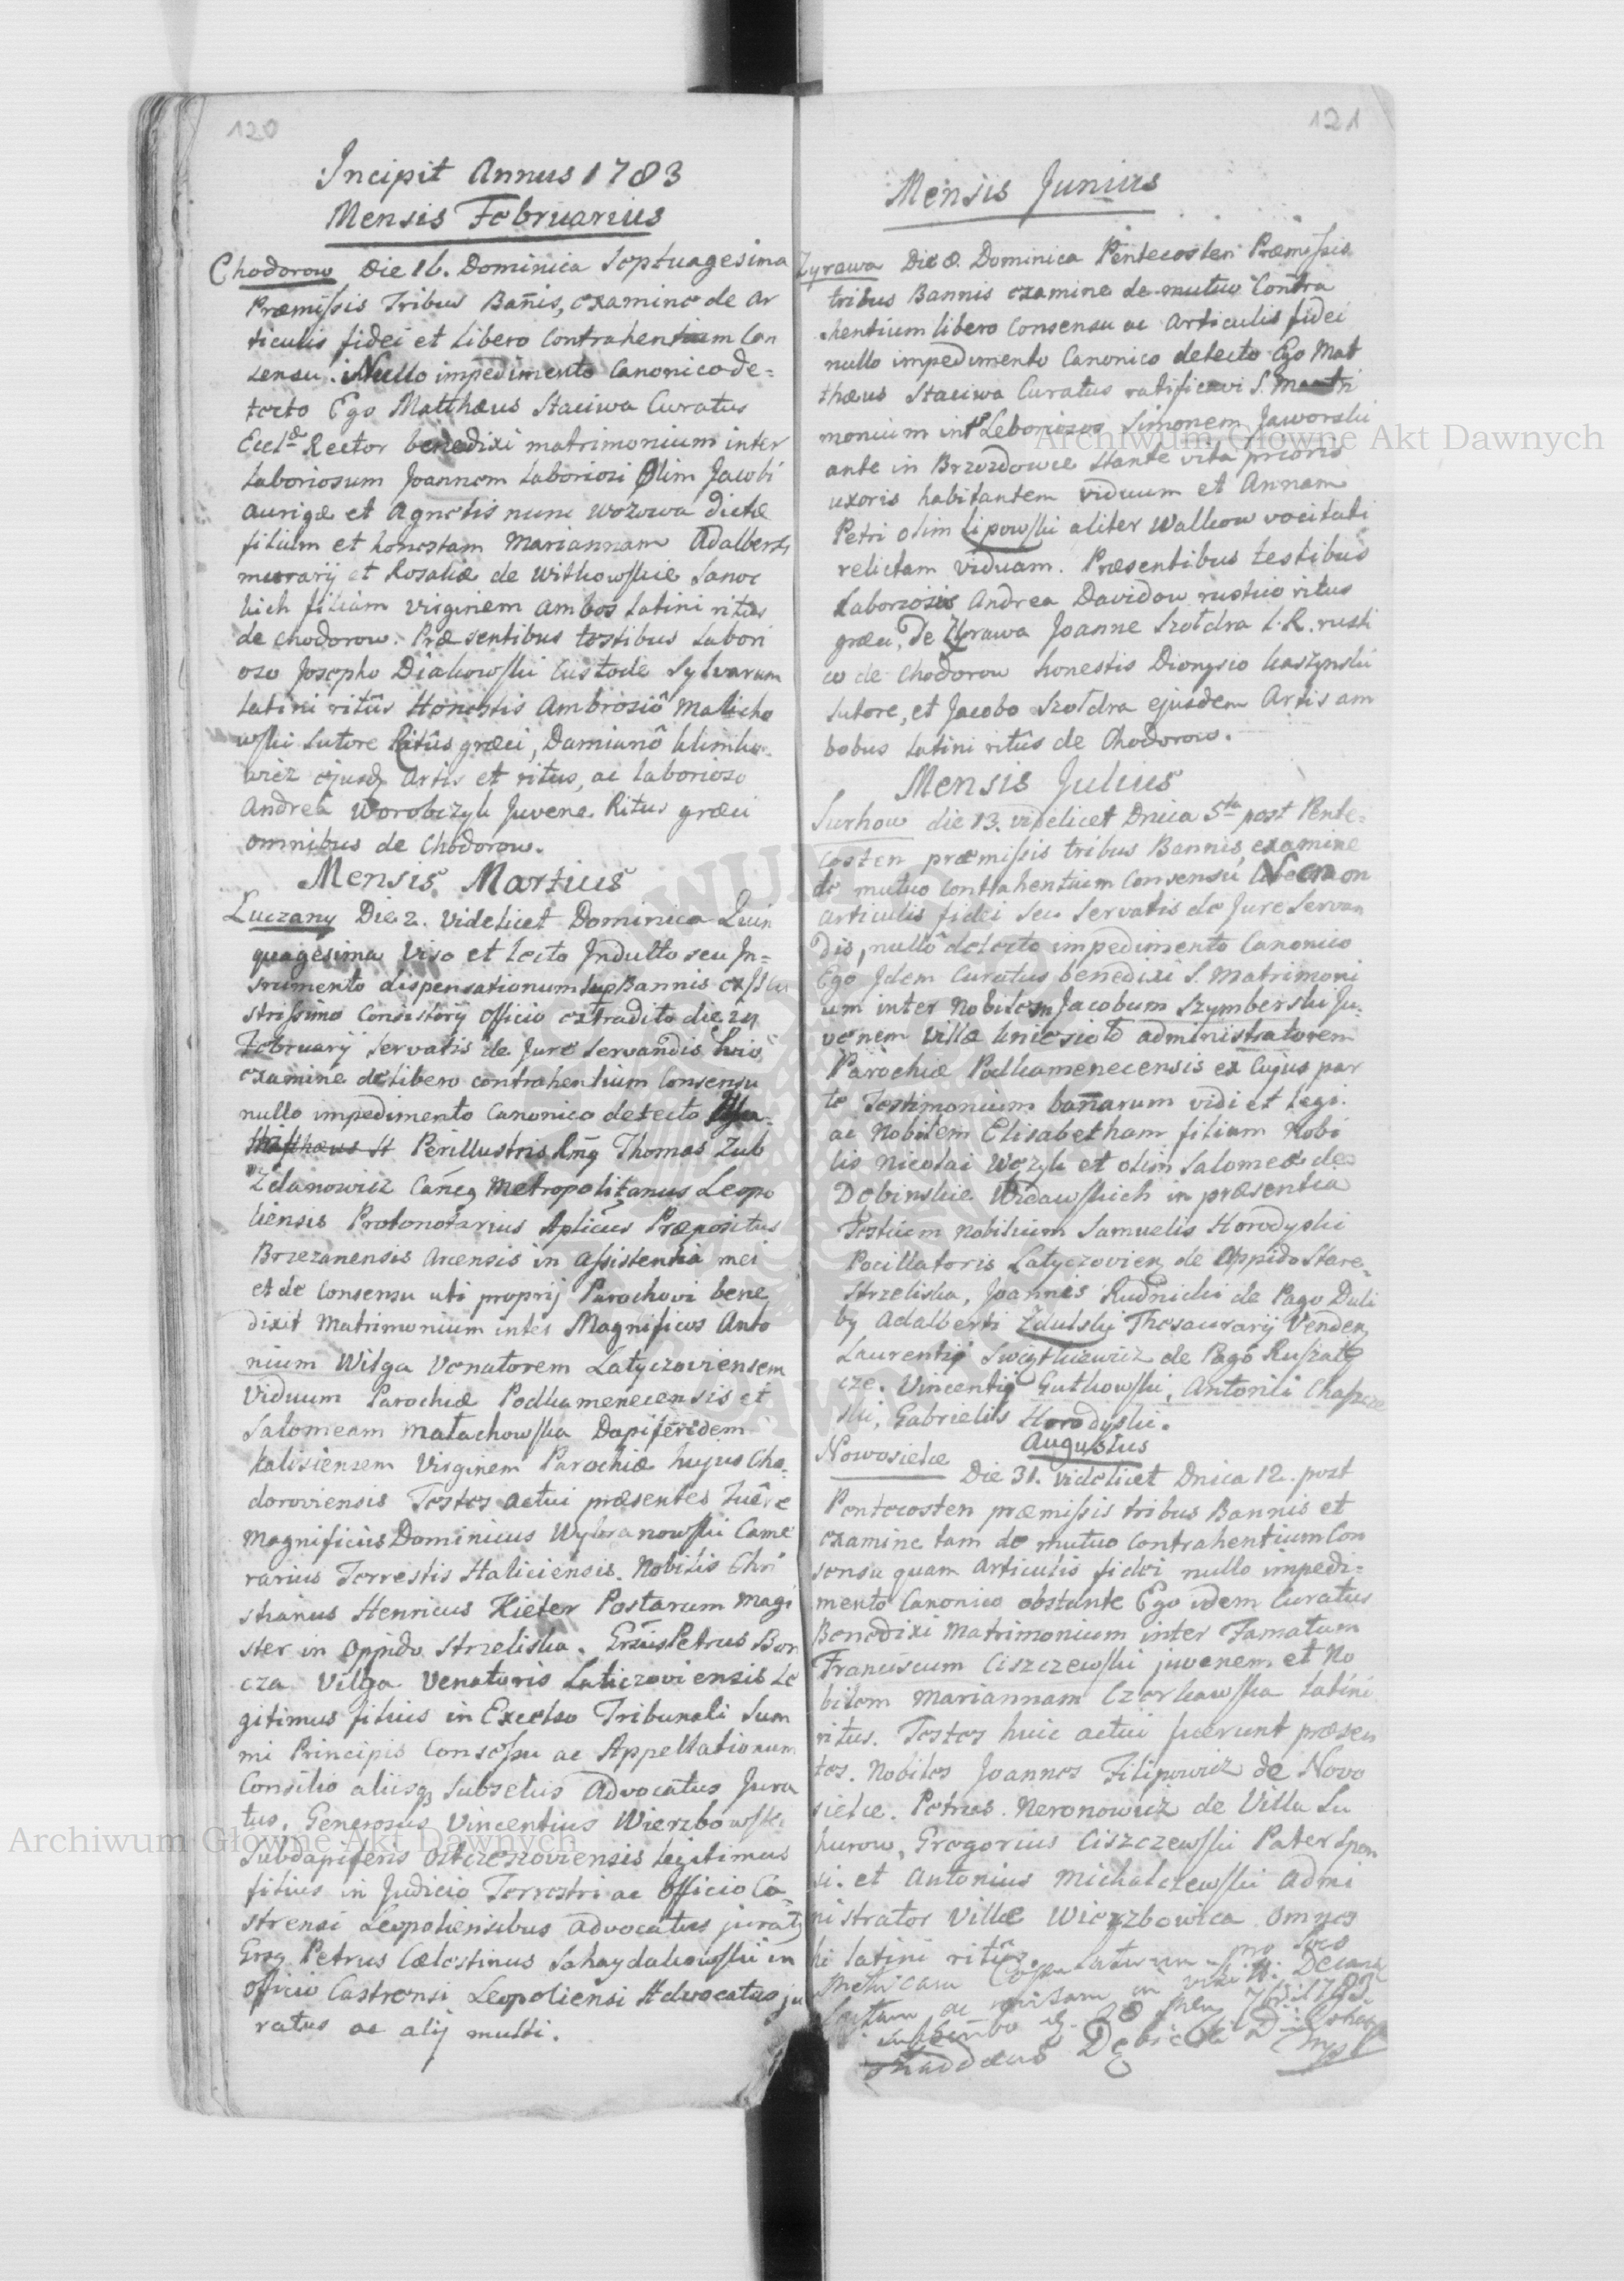 120
Incipit Annus 1783
Mensis Februarius
Chodorow Die 16. Dominica Septuagesima
Præmissis Tribus Bañis, examine de ar
ticulis fidei et libero Contrahentium Con
sensu. Nullo impedimento Canonico de=
tecto Ego Matthæus Staciwa Curatus
Eccl. Rector benedixi matrimonium inter
Laboriosum Joannem Laboriosi Olim Jacobi
aurigæ et Agnetis nunc Wozowa dictæ
filium et honestam Mariannam Adalberti
murarij et Rosaliæ de Witkowskie Sanoc
kich filiam virginem ambos Latini ritus
de Chodorow. Præsentibus testibus Labori
oso Josepho Diakowski Custode Sylvarum
Latini ritûs Honestis Ambrosiô Malicho
wski Sutore Ritûs græci, Damianô Klimko
wicz ejusq Artis et ritus, ac laborioso
Andrea Worobczyk Juvene Ritus græci
omnibus de Chodorow.
Mensis Martius
Luczany Die 2. Videlicet Dominica Quin
quagesima Viso et lecto Indulto seu In=
strumento dispensationum sup Bannis ex Illu
strissimo Consistorij Officio extradito die 24
Februarij servatis de Jure servandis
examine de libero contrahentium Consensu
nullo impedimento Canonico detecto
Perillustris Rmg Thomas Zub
Zdanowicz Cañcg Metropolitanus Leopo
liensis Protonotarius Aplicus Præpositus
Brzezanensis Arcensis in Assistentia mei
et de Consensu uti proprij Parochovi bene
dixit Matrimonium inter Magnificos Anto
nium Wilga Venatorem Latyczoviensem
Viduum Parochiæ Podkamenecensis et
Salomeam Małachowska Dapiferidem
Kalisiensem Virginem Parochiæ hujus Cho
doroviensis Testes actui præsentes fuêre
Magnificus Dominicus Wybranowski Came
rarius Terrestis Haliciensis. Nobilis Chri
stianus Henricus Kieter Postarum Magi
ster in Oppido Strzeliska. Petrus Bon
cza Vilga Venatoris Laticzoviensis Le
gitimus filius in Excelso Tribunali Sum
mi Principis Consessu ac Appellationum
Consilio aliisq Subseliis Advocatus Jura
tus, Generosus Vincentius Wierzbowski
Subdapiferis Legitimus
filius in Judicio Terrestri ac Officio Ca
strensi Leopoliensibus Advocatus jurat
Petrus Cælestinus Sahaydakowski in
Officio Castrensi Leopoliensi Advocatus ju
ratus ac alij multi.
121
Mensis Junius
Zyrawa Die 8. Dominica Pentecosten Præmissis
tribus Bannis examine de mutuo Contra
hentium libero Consensu ac Articulis fidei
nullo impedimento Canonico detecto Ego Mat
thæus Staciwa Curatus ratificavi S. Matri
monium Laboriosos Simonem Jaworski
ante in Brzozdowce Stante vita prioris
uxoris habitantem viduum et Annam
Petri olim Lipowski aliter Walkow vocitati
relictam viduam. Præsentibus testibus
Laboriosis Andrea Davidow rustico ritus
græci, De Zyrawa Joanne Szołdra L.R. rusti
co de Chodorow honestis Dionysio Kaszynski
Sutore, et Jacobo Szołdra ejusdem Artis am
bobus Latini ritûs de Chodorow.
Mensis Julius
die 13. videlicet Dnica 5ta post Pente=
costen præmissis tribus Bannis examine
de mutuo contrahentium consensu
articulis fidei seu servatis de Jure Servan
dis, nullô detecto impedimento Canonico
Ego Idem Curatus benedixi S. Matrimoni
um inter Nobilem Jacobum Szymberski Ju
venem Villæ Kniesioło administratorem
Parochiæ Podkamenecensis ex Cujus par
te Testimonium bañarum vidi et legi.
ac Nobilem Elisabetham filiam Nobi
lis Nicolai Wozyk et olim Salomeæ de
Dębinskie Widawskich in præsentia
Testium nobilium Samuelis Horodyski
Pocillatoris Latyczovien de Oppido Stare
Strzeliska, Joannis Rudnicki de Pago Duli
by Adalberti Zdulski Thesaurarij Venden
Laurentij Swiętkiewicz de Pago
cze. Vincentij Gutkowski, Antonii
ski, Gabrielis Horodyski.
Augustus
Nowosielce Die 31. videlicet Dnica 12. post
Pentecosten præmissis tribus Bannis et
examine tam de mutuo Contrahentium Con
sensu quam Articulis fidei nullo impedi=
mento Canonico obstante Ego idem Curatus
Benedixi Matrimonium inter Famatum
Franciscum Ciszczewski juvenem et No
bilem Mariannam Czerkawska Latini
ritus. Testes huic actui fuerunt præsen
tes. Nobiles Joannes Filipowicz de Novo
sielce. Petrus Neronowicz de Villa Su
hurow, Gregorius Ciszczewski Pater Spon
si. et Antonius Michalczewski Admi
nistrator Villæ Wierzbowica omnes
hi latini ritûs
Metricam pro loco
ac visitam in
subscribo
Thaddæus